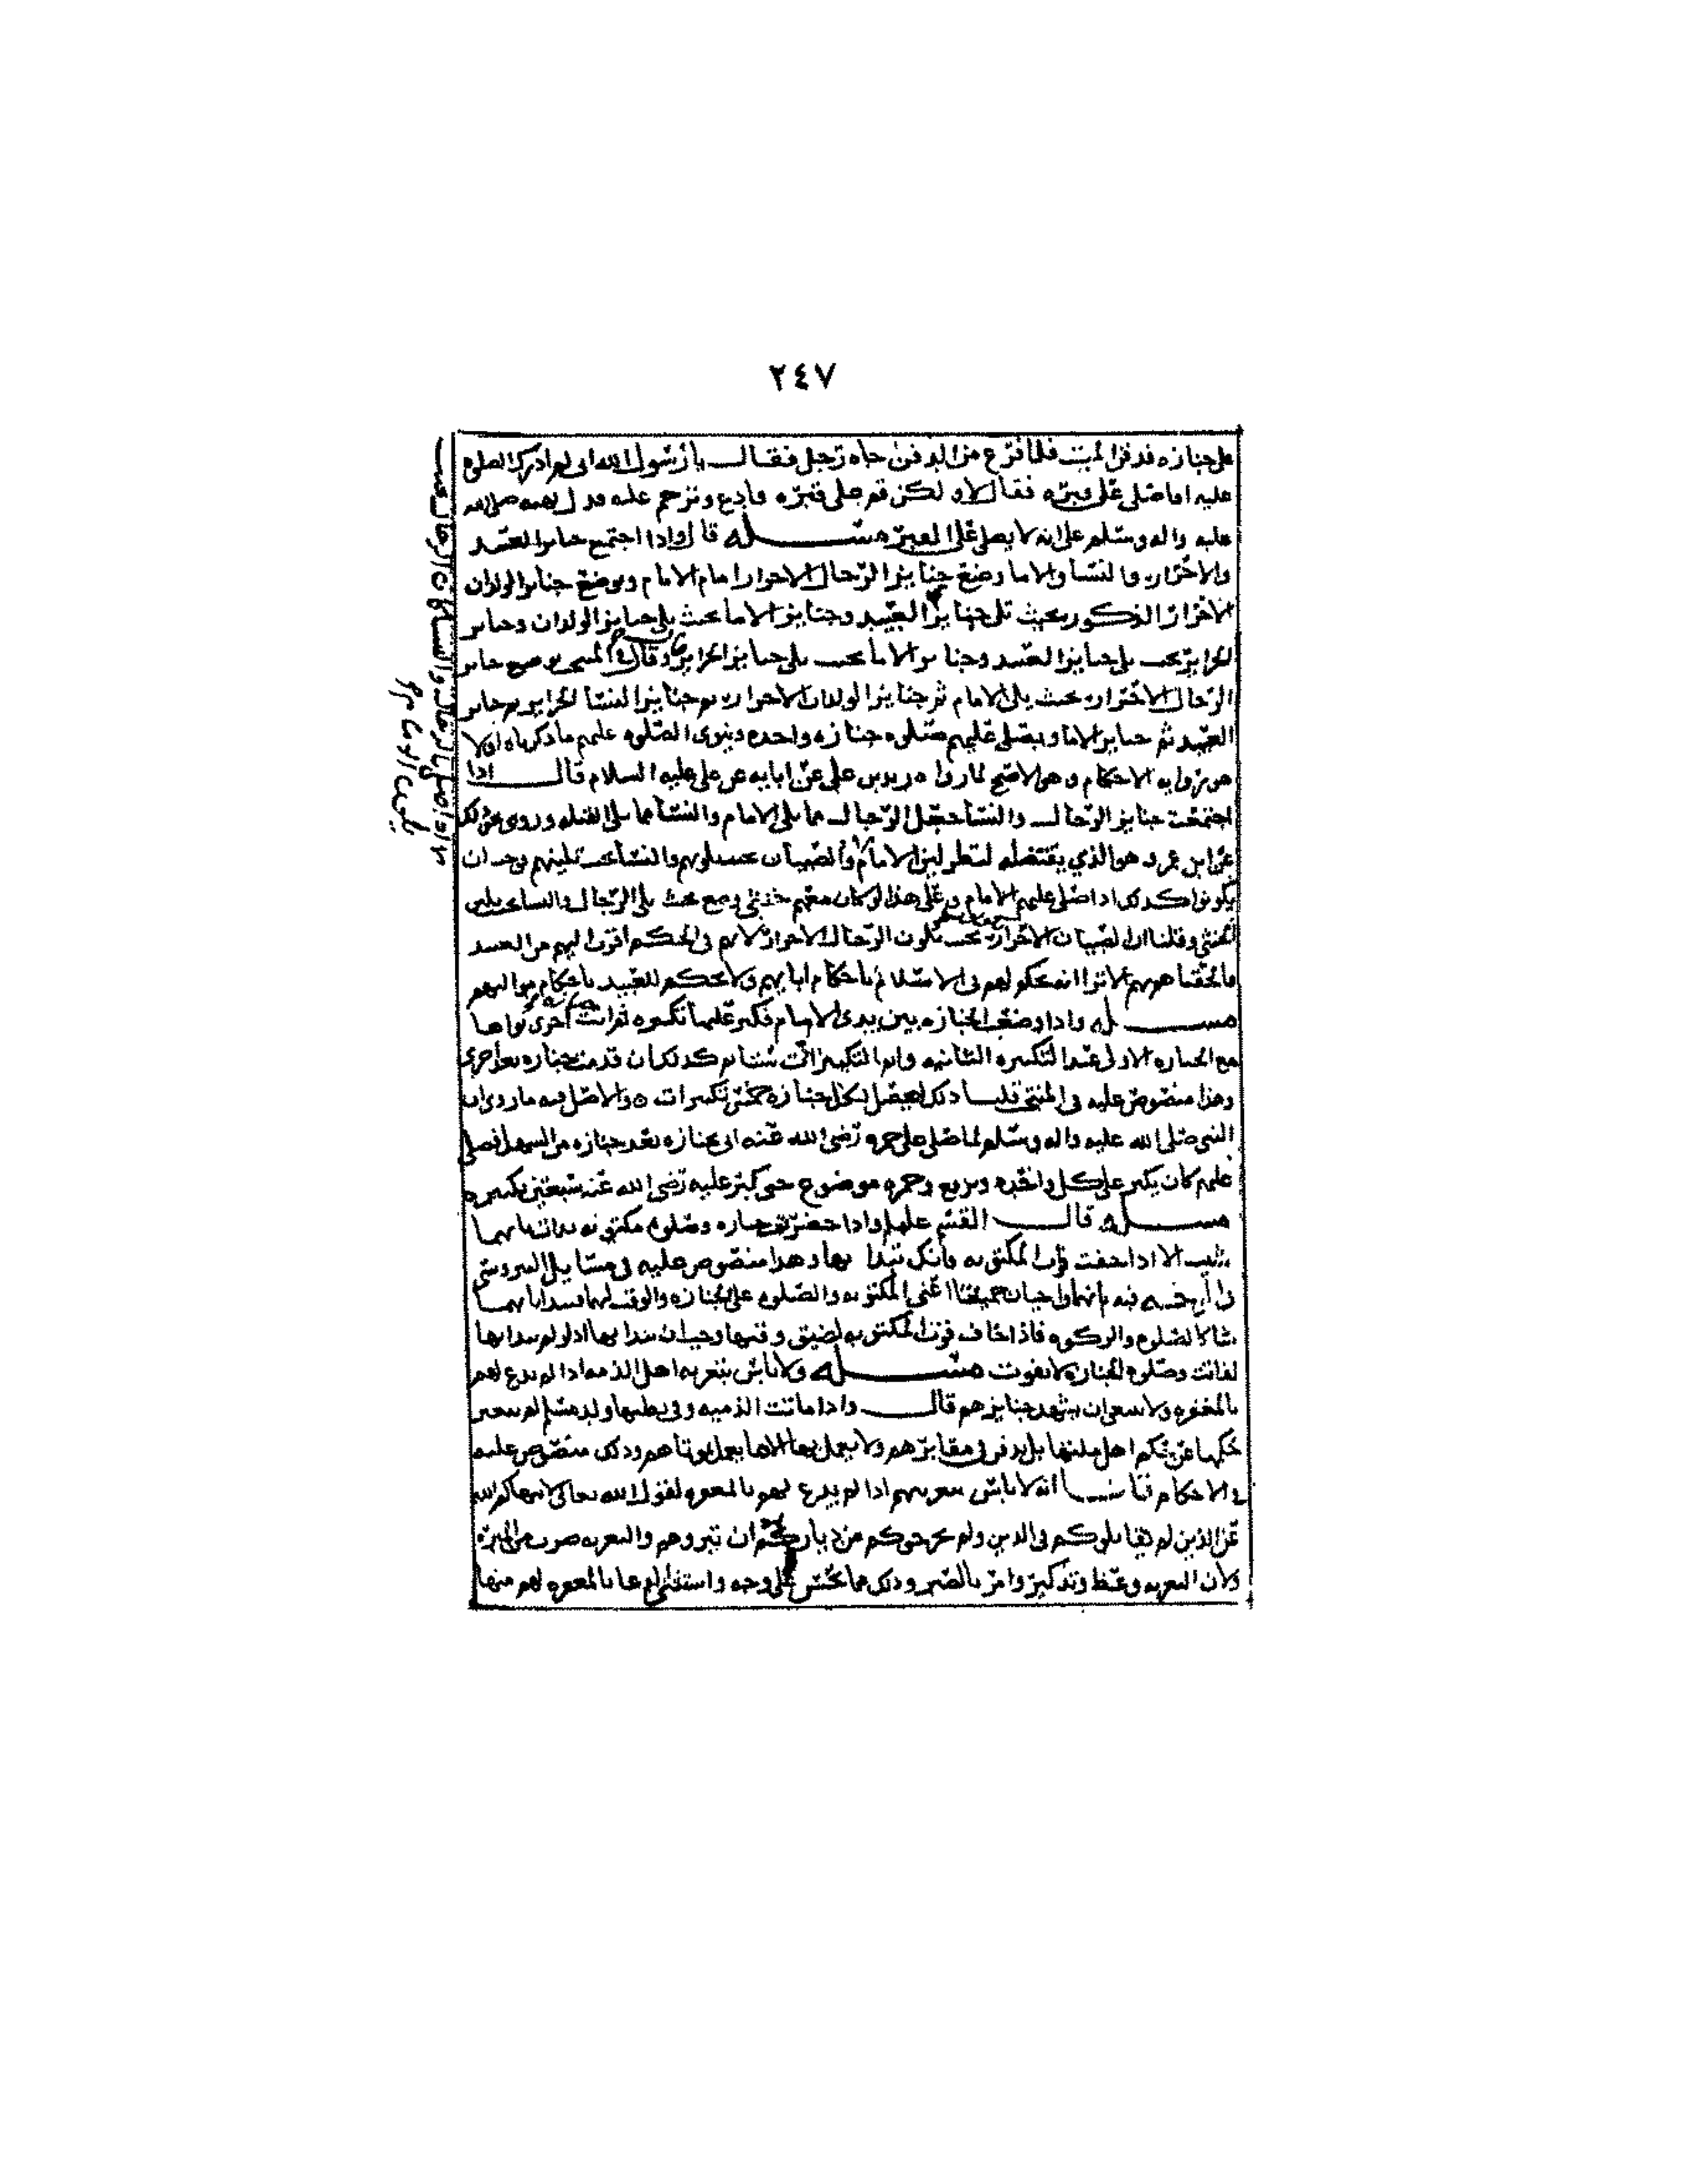 ٢٤٧
على جنازه فدفن الميت فلما فرغ من الدفن جاه رجل فقال يا رسول الله اني لم ادرك الصلوه
عليه افاصلي على قبره فقال لا ولكن قم على قبره فادع وترحم عليه فدل بهذا صلى الله
عليه واله وسلم على انه لا يصلي على القبره مسله قال واذا اجتمع جنايز العبيد
والاحرار والنسا والاما وضع جنايز الرجال الاحرار امام الامام ويوضع جنايز الولدان
الاحرار الذكور بحيث تلي جنايز العبيد وجنايز الاما بحيث يلي جنايز الولدان وجنايز
الحراير بحيث يلي جنايز العبيد وجنايز الاما بحيث يلي جنايز الحراير وقال في المنتخب يوضع جنايز
الرجال الاحرار بحيث يلي الامام ثم جنايز الولدان الاحرار ثم جنايز النسا الحراير ثم جنايز
العبيد ثم جنايز الاما ويصلى عليهم صلوه جنازه واحده وينوي الصلوه عليهم ما ذكرناه اولا
هو روايه الاحكام وهو الاصح لما روا زيد بن علي عن ابايه عن علي عليه السلام قال اذا
اجتمعت جنايز الرجال والنسا جعل الرجال مما يلي الامام والنسا مما يلي القبله وروي نحو ذلك
عن ابن عمر وهو الذي يقتضيه والصبيان والنسا بحيث تلينهم وجب ان
يكونوا كذلك اذا صلى عليهم الامام وعلى هذا لو كان معهم خنثى وضع بحيث يلي الرجال والنسا بحيث يلين
الخنثى وقلنا ان الصبيان الاحرار بحيث يلون الرجال الاحرار لانهم في الحكم اقرب اليهم من العبيد
فالحقناهم بهم الا ترا انه يحكم لهم في الاسلام باحكام ابايهم ولا يحكم للعبيد باحكام مواليهم
مسله واذا وضعت الجنازه بين يدي الامام فكبر عليها تكبيره ثم اتت اخرى نواها
مع الجنازه الاولى عند التكبيره الثانيه واتم التكبيرات ستا ثم كذلك ان قدمت جنازه بعد اخرى
وهذا منصوص عليه في المنتخب قلنا ذلك ليحصل لكل جنازه خمس تكبيرات والاصل فيه ما روي ان
النبي صلى الله عليه واله وسلم لما صلى على حمزه رضي الله عنه اتي بجنازه بعد جنازه من الشهدا فصلى
عليهم كان يكبر على كل واحده ويرفع وحمزه موضوع حتى كبر عليه رضي الله عنه سبعين تكبيره
مسله قال القسم عليلم واذا حضرت جنازه وصلوه مكتوبه بدات بايهما
شيت الا اذا خفت فوات المكتوبه فانك تبدا بها وهذا منصوص عليه في مسايل النيروسي
والوجه فيه انهما واجبان جميعا اعني المكتوبه والصلوه على الجنازه والوقت لهما فيبدا بايهما
شا كالصلوه والزكوه فاذا خاف فوت المكتوبه لضيق وقتها وجب ان يبدا بها اذ لو لم يبدا بها
لفاتت وصلوه الجنازه لا تفوت مسله ولا باس بتعزيه اهل الذمه اذا لم يدع لهم
بالمغفره ولا ينبغي ان يشهد جنايزهم قال واذا ماتت الذميه وفي بطنها ولد مسلم لم يتغير
حكمها عن حكم اهل ملتها بل يدفن في مقابرهم ولا يعمل بها الا ما يعمل بموتاهم وذلك منصوص عليه
في الاحكام قلنا انه لا باس بتعزيتهم اذا لم يدع لهم بالمغفره لقول الله تعالى لا ينهاكم الله
عن الذين لم يقاتلوكم في الدين ولم يخرجوكم من دياركم ان تبروهم والتعزيه ضرب من المبره
ولان التعزيه وعظ وتذكير وامر بالصبر وذلك مما يحسن على وجه واستثنى الدعا بالمغفره لهم منها